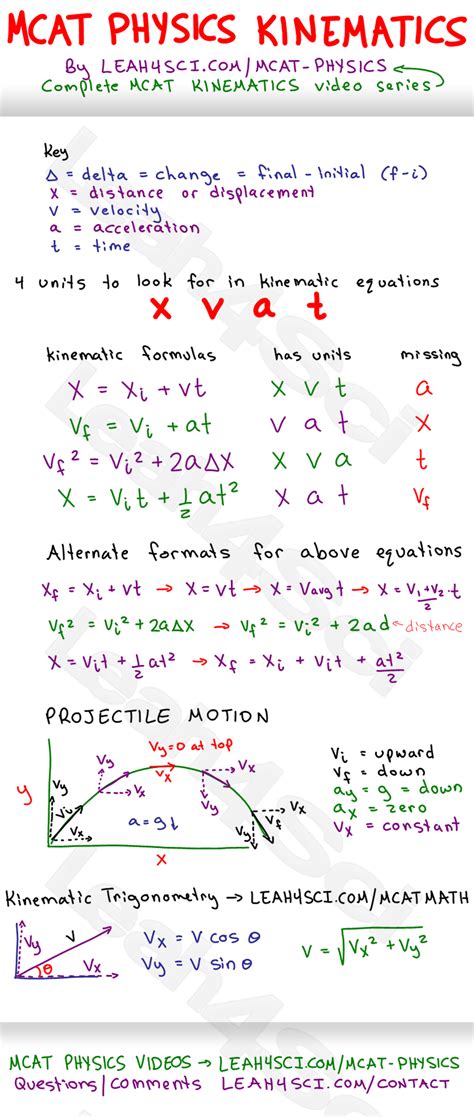 MCAT PHYSICS KINEMATICS
By LEAH4SCI.COM/MCAT-PHYSICS
Complete MCAT KINEMATICS video series
Key
Δ = delta = change = final - Initial (f-i)
X = distance or displacement
V = velocity
a = acceleration
t = time
4 units to look for in kinematic equations
x v a t
kinematic formulas has units missing
X = Xi + vt X V t a
Vf = Vi + at V a t X
Vf² = Vi² + 2aΔX X V a t
X = Vit + ½at² X a t Vf
Alternate formats for above equations
Xf = Xi + vt → X = vt → X = Vavg t → X = V₁+V₂/2 · t
Vf² = Vi² + 2aΔX → Vf² = Vi² + 2ad ← distance
X = Vit + ½at² → Xf = Xi + Vit + at²/2
PROJECTILE MOTION
Vy=0 at top
Vx
Vy
Vx
Vy
Vx
Vy
Vi
Vx
Vy
Vf
Vx
y
a=g↓
x
Vi = upward
Vf = down
ay = g = down
ax = zero
Vx = constant
Kinematic Trigonometry → LEAH4SCI.COM/MCATMATH
Vy
V
Vx
θ
Vx = V cos θ
Vy = V sin θ
V = √Vx² + Vy²
MCAT PHYSICS VIDEOS → LEAH4SCI.COM/MCAT-PHYSICS
Questions|Comments LEAH4SCI.COM/CONTACT
Leah4Sci
Leah4Sci
Leah4Sci